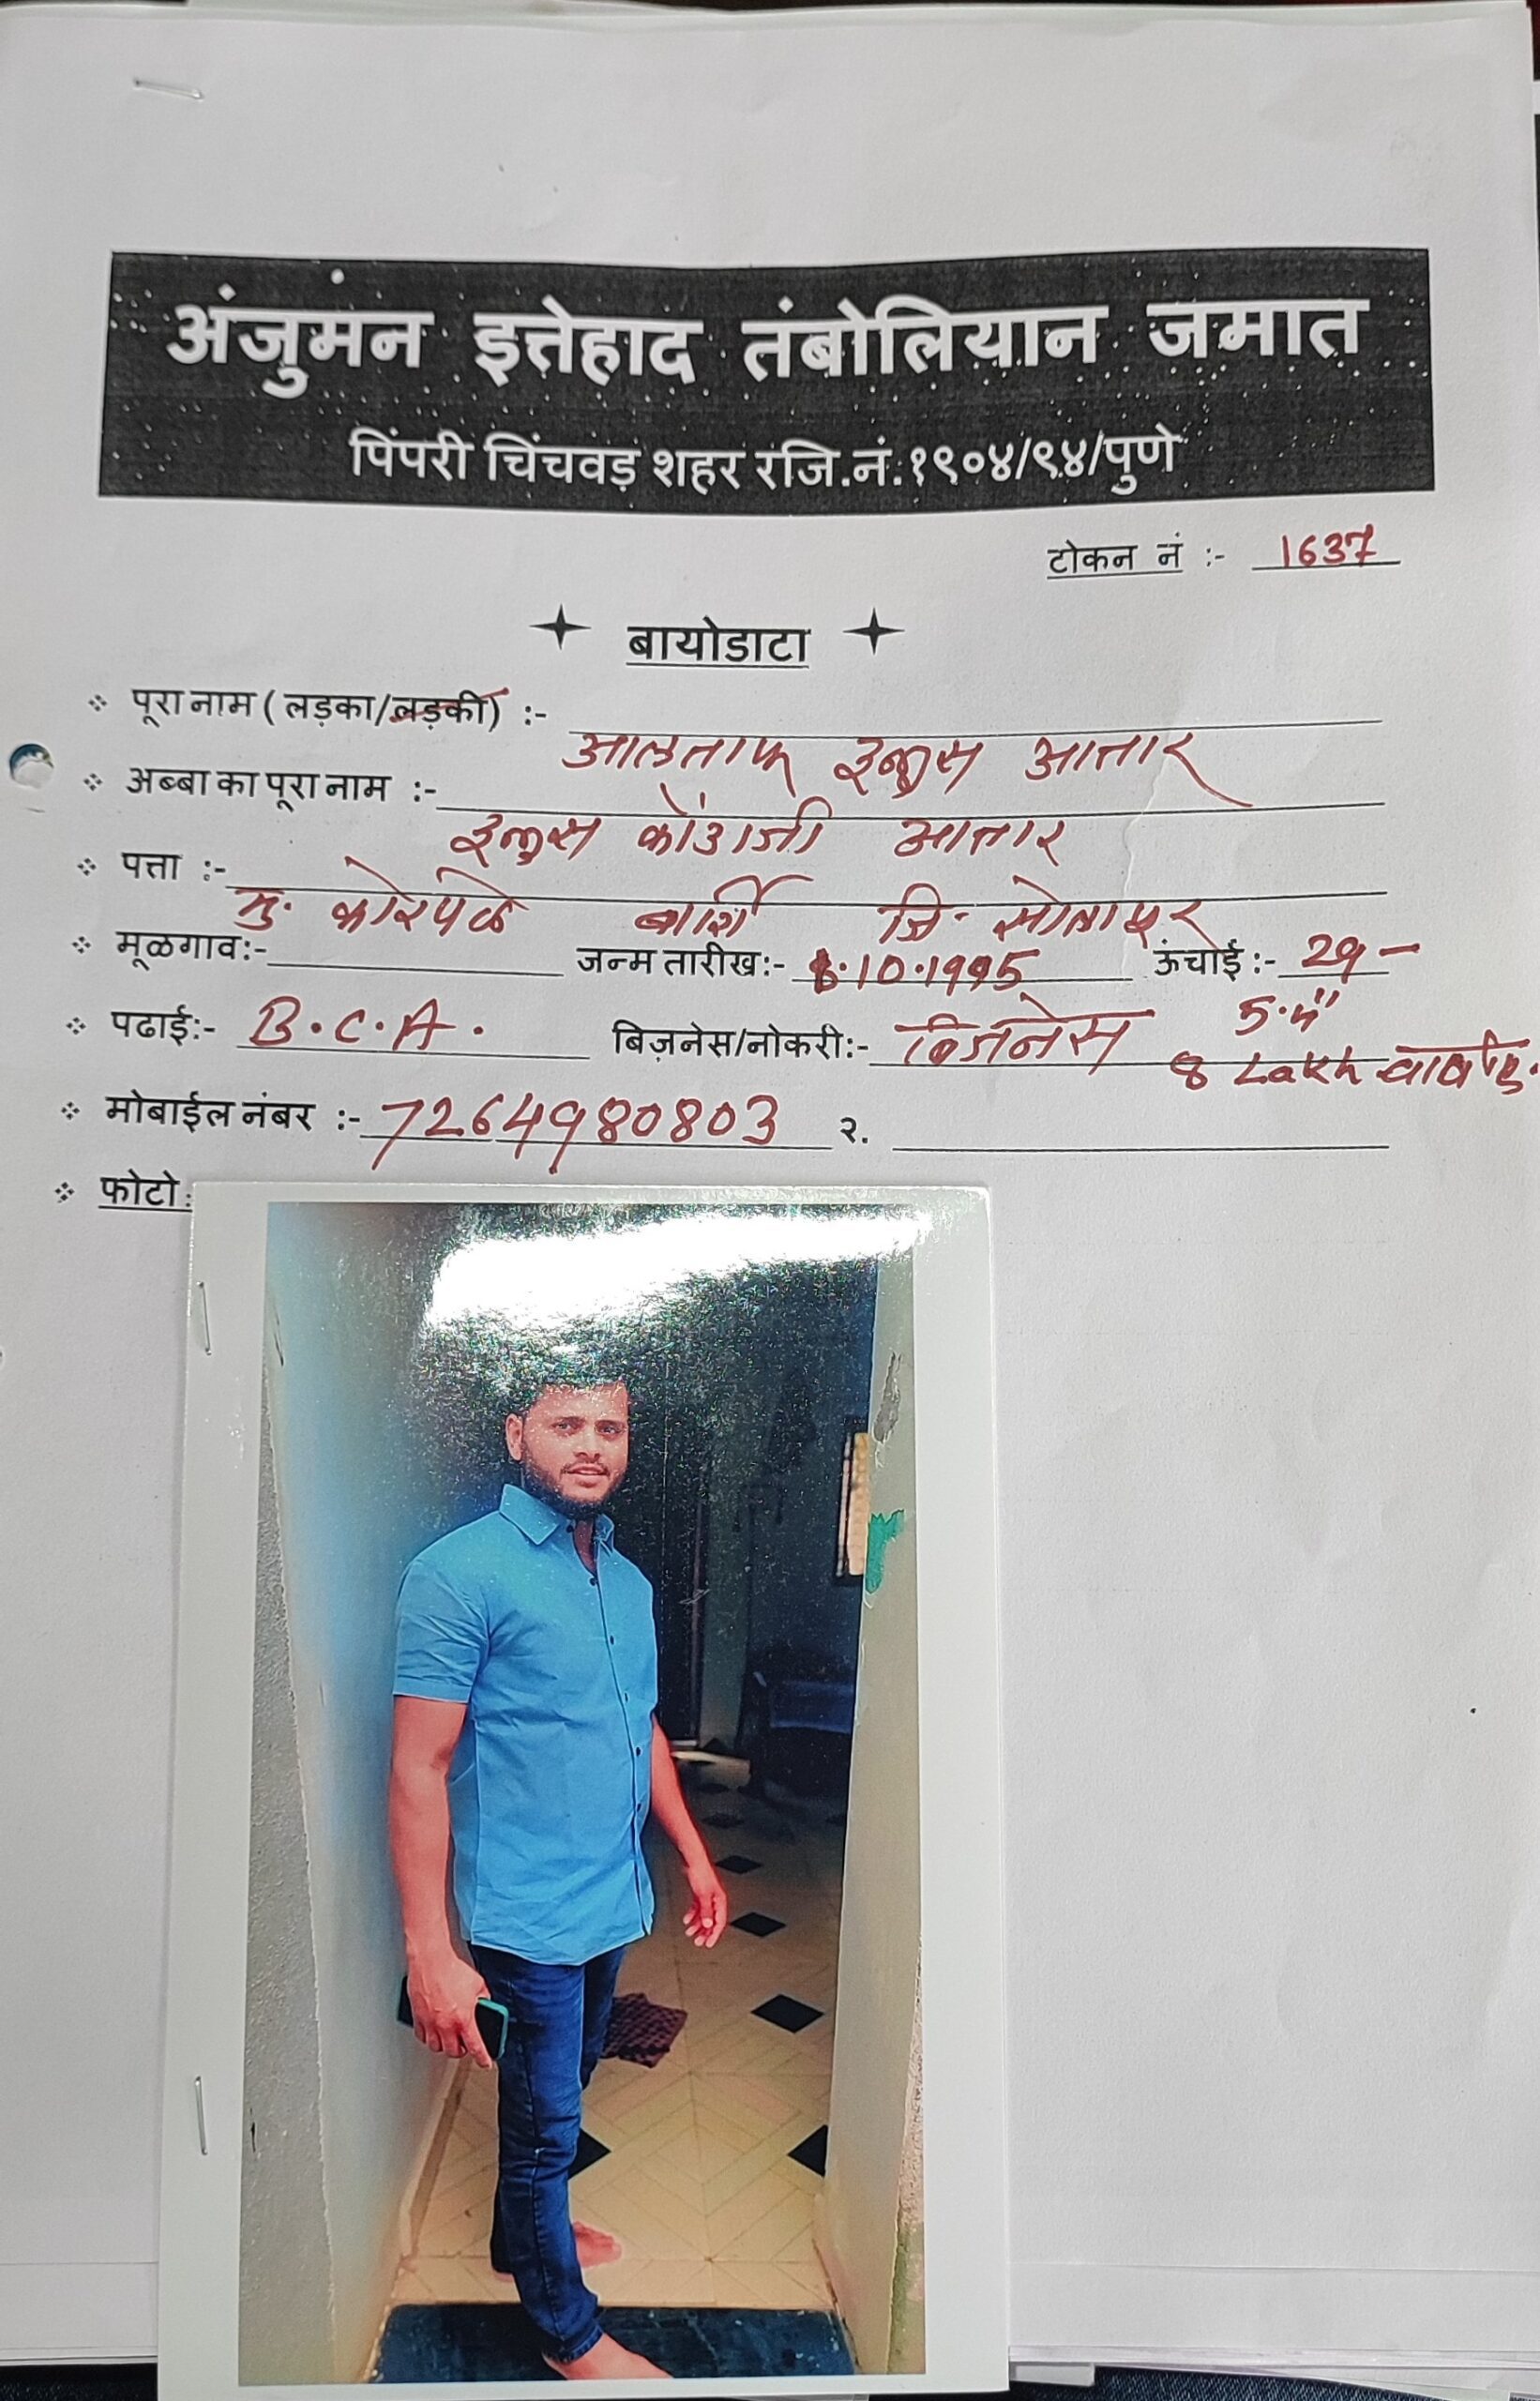 अंजुमन इत्तेहाद तंबोलियान जमात
पिंपरी चिंचवड़ शहर रजि.नं.१९०४/९४/पुणे
टोकन नं :- 1637
बायोडाटा
पूरा नाम ( लड़का/लड़की) :-
आलताफ आत्तार
अब्बा का पूरा नाम :-
आत्तार
पत्ता :-
मु. कोरफळे बार्शि जि- सोलापूर
मूळगाव:- जन्म तारीख:- 8.10.1995 ऊंचाई :- 29 -
5.4"
पढाई:- B.C.A. बिज़नेस/नोकरी:- बिजनेस
8 Lakh
मोबाईल नंबर :- 7264980803 २.
फोटो: